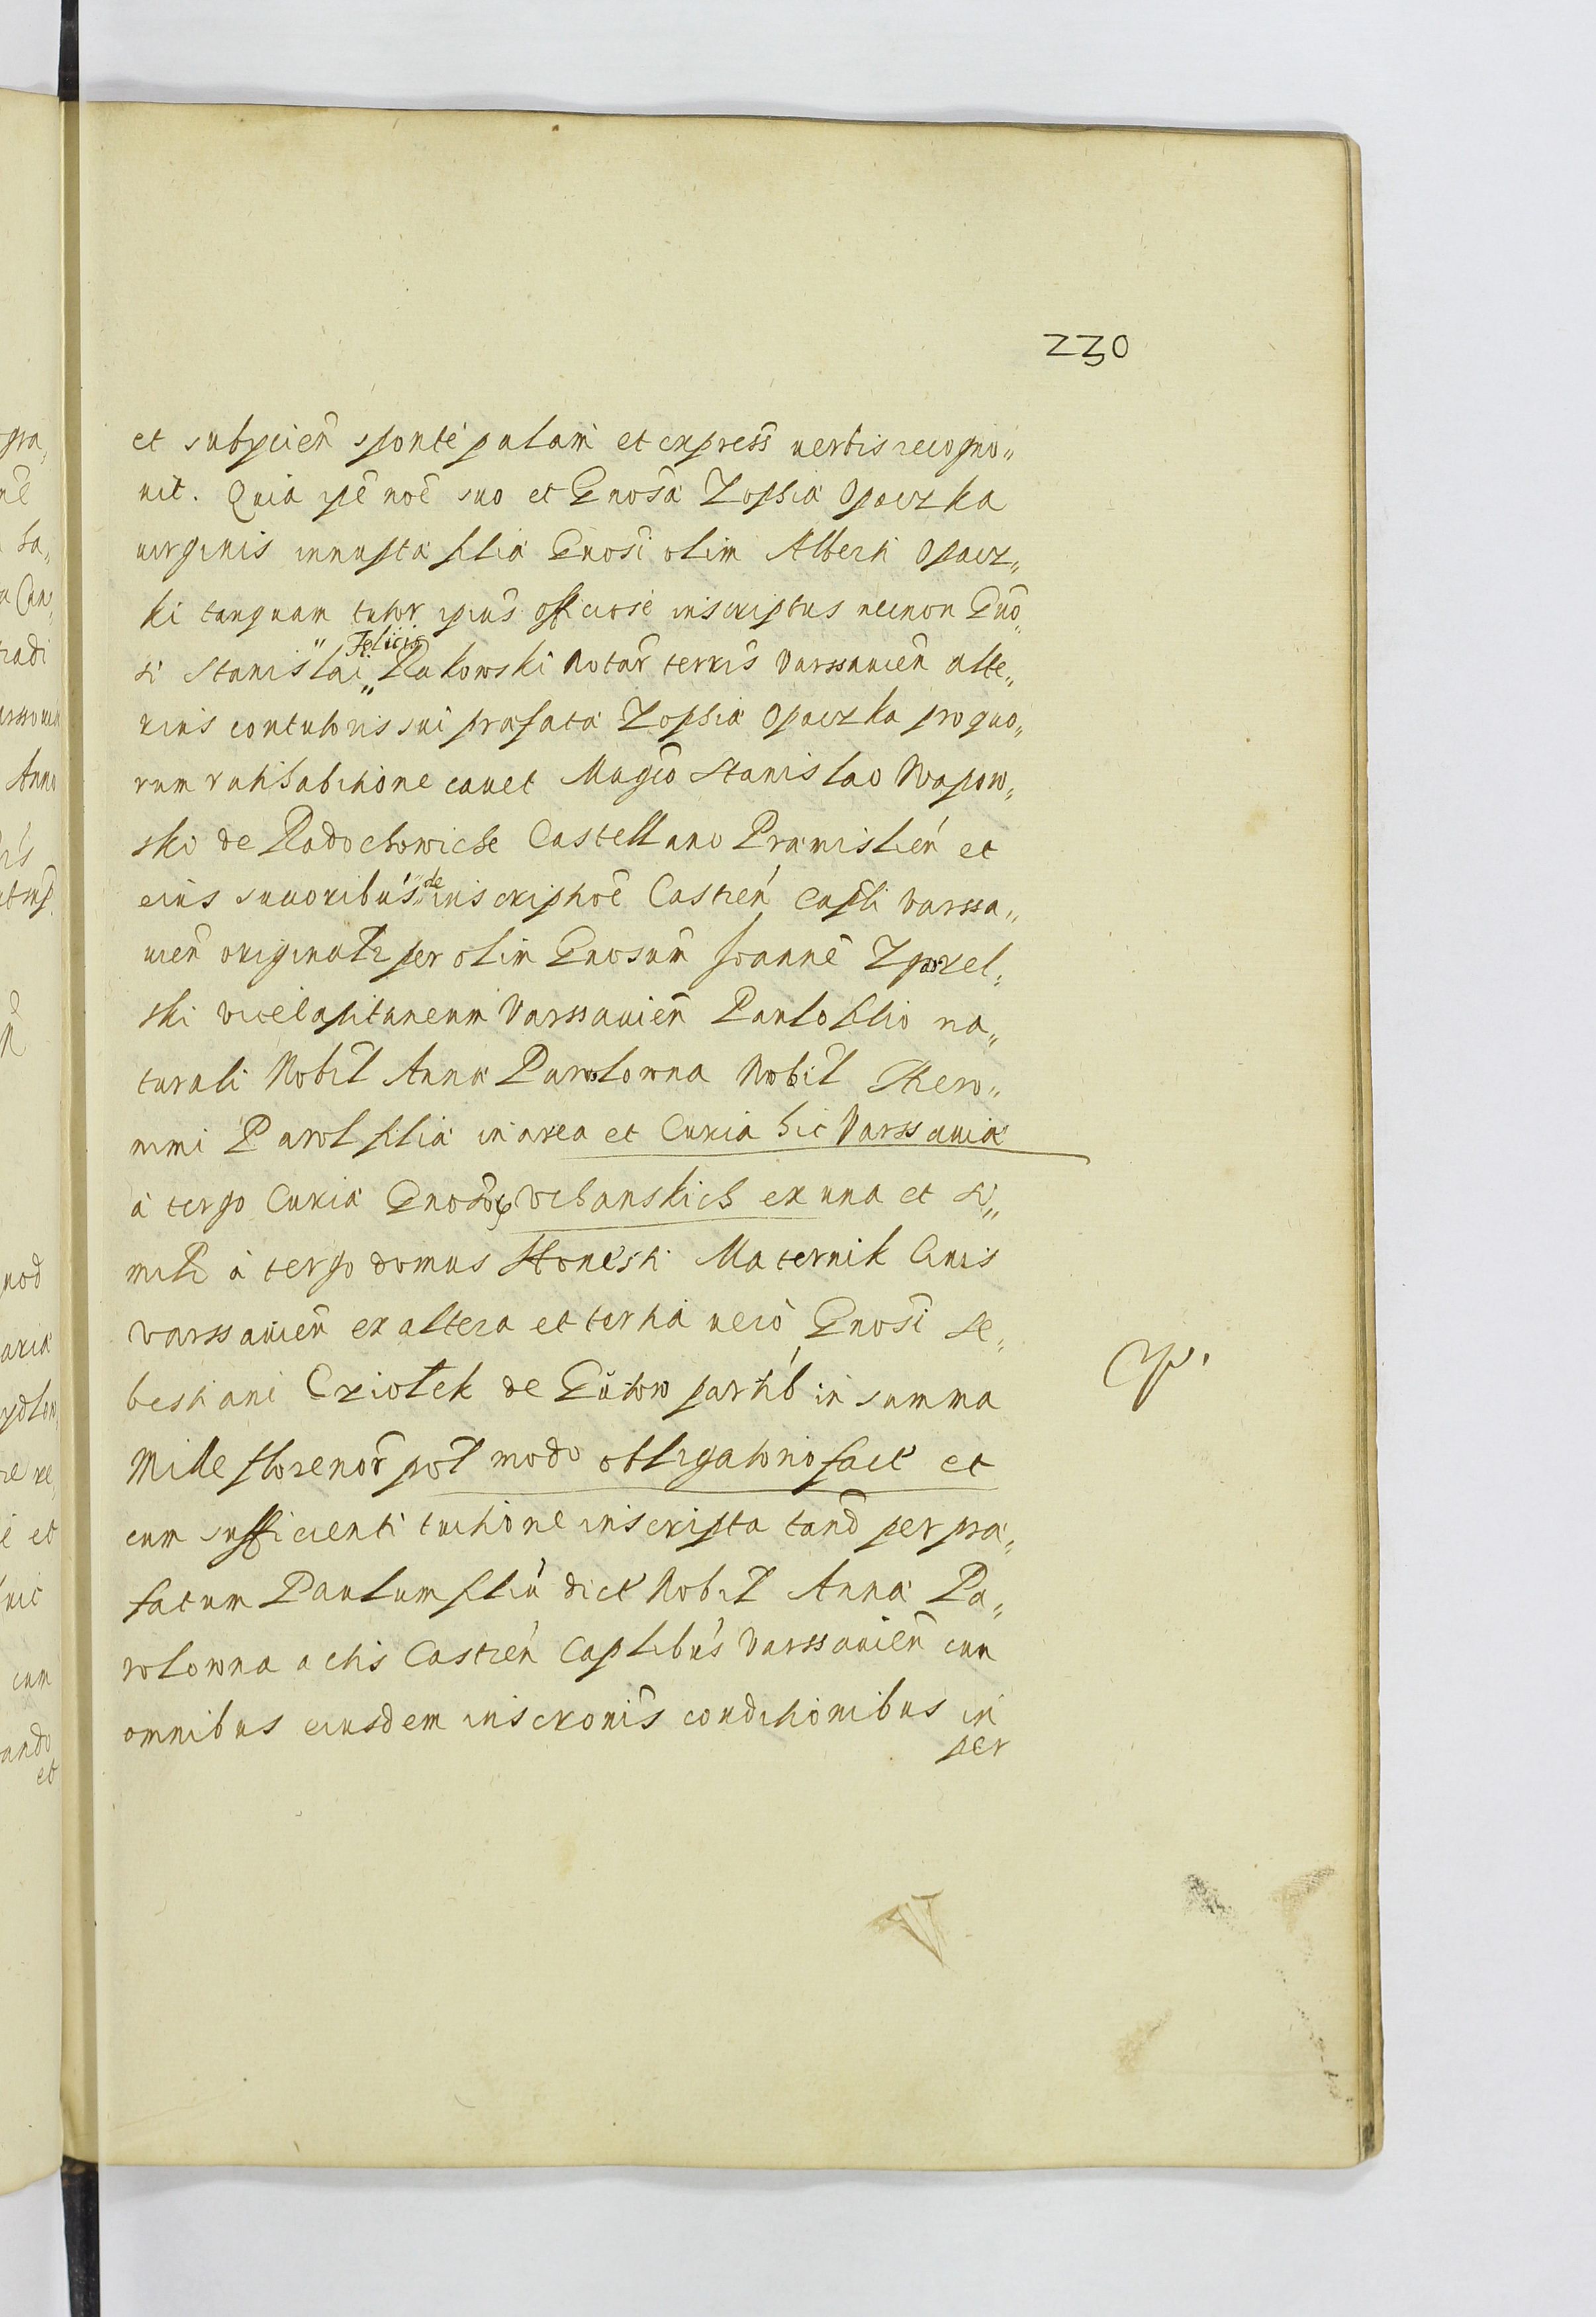 230
et subyciens sponte palam et express verbis recogno„
uit. Quia ipē noē suo et Gnosa Zophia Opaczka
uirginis innupta filia Gnosi olim Alberti Opacz„
ki tanquam tutor ipius officiose inscriptus necnon Gno„
si Stanislai „Felicis„ Rakowski Notar terris Varssauien alte„
rius contutoris sui præfata Zophia Opaczka pro quo„
rum ratihabitione cauet Magco Stanislao Wapow„
ski de Radochowicze Castellano Præmislien et
eius suuoribus „de„ inscriptoē Castren Capli Varssa„
uien originali per olim Gnosum Joannē
ski vicecapitaneum Varssauien Paulo filio na„
turali Nobil Anna Pawlowna Nobil Hiero„
nimi Pawl filia in area et Curia hic Varssauia
à tergo Curia Gnosor Vchanskich ex una et si„
mili à tergo domus Honesti Maternik Ciuis
Varssauien ex altera et tertia uero Gnosi Se„
bestiani Criotek de Gutow partib in summa
Mille florenor pol modo obligatorio fact et
cum sufficienti euictione inscripta tand per præ„
fatum Paulum filiu dict Nobil Anna Pa„
wlowna actis Castren Caplibus Varssauien cum
omnibus eiusdem inscronis conditionibus in
per